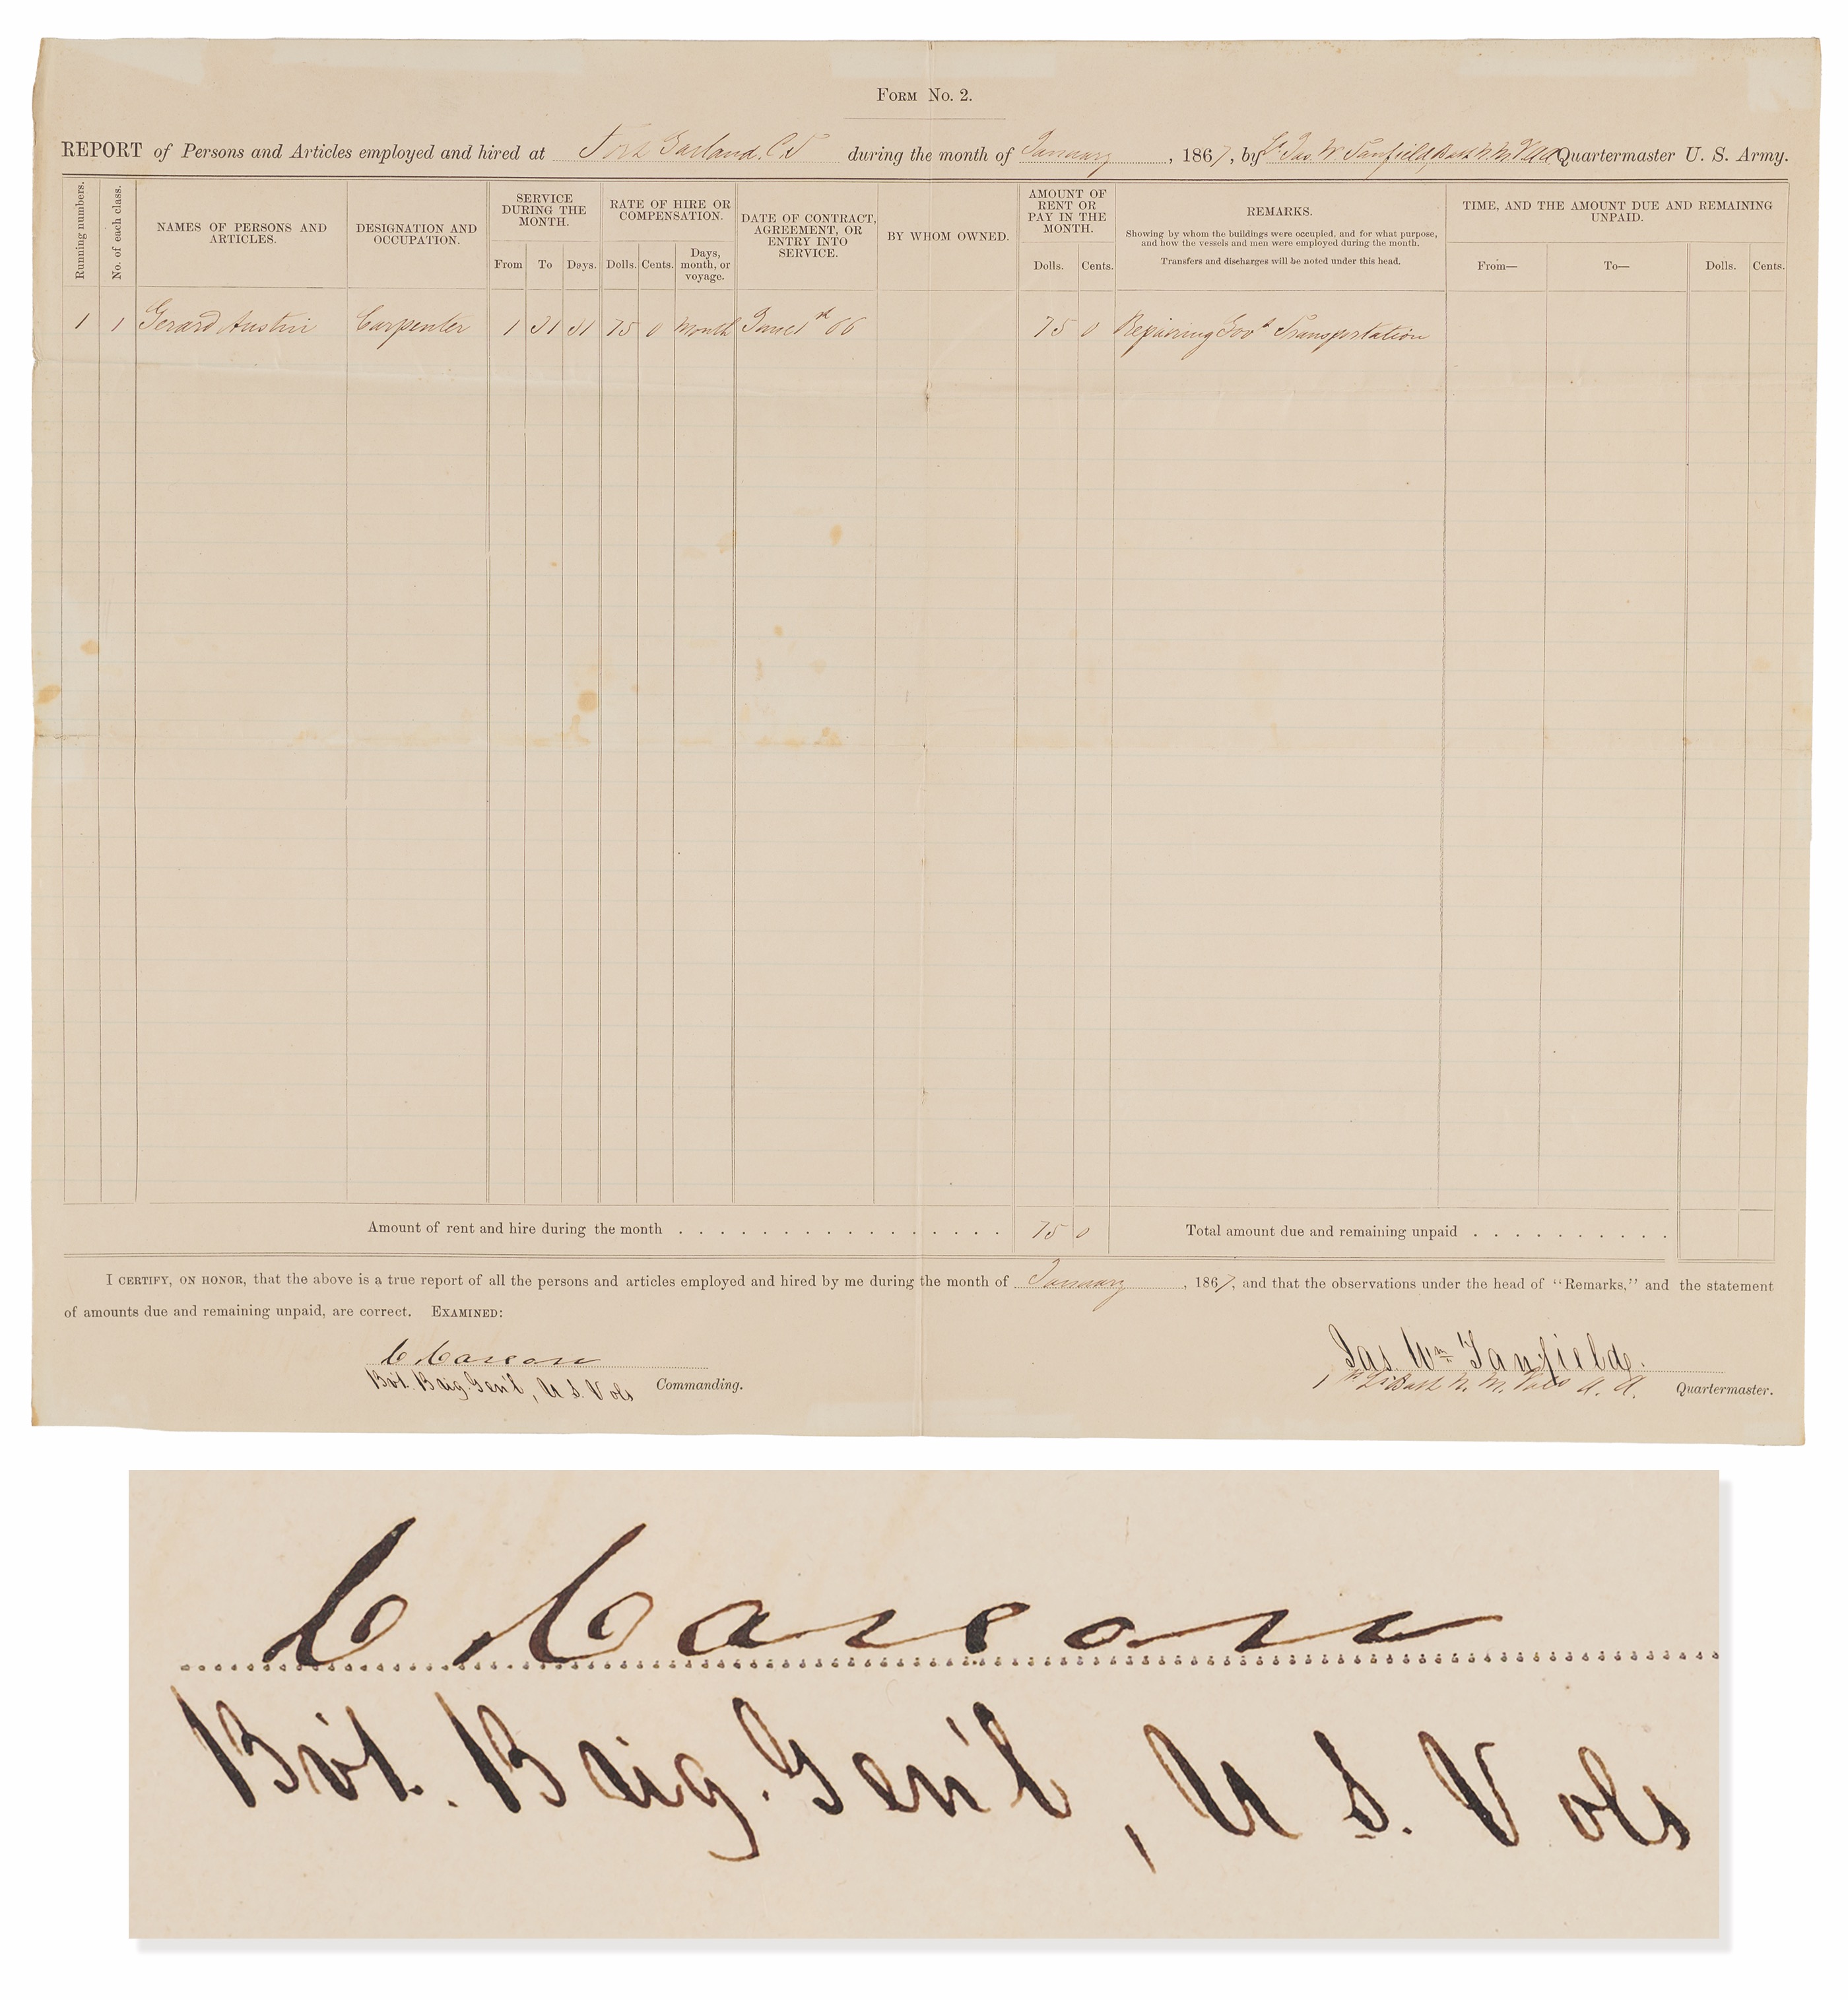 FORM No. 2.
REPORT of Persons and Articles employed and hired at Fort Garland, C.T during the month of January, 1867, by Lt Jas. W. Tanfield, Batt N. M. V. Quartermaster U. S. Army.
Running numbers.
No. of each class.
NAMES OF PERSONS AND ARTICLES.
DESIGNATION AND OCCUPATION.
SERVICE DURING THE MONTH.
From
To
Days.
RATE OF HIRE OR COMPENSATION.
Dolls.
Cents.
Days, month, or voyage.
DATE OF CONTRACT, AGREEMENT, OR ENTRY INTO SERVICE.
BY WHOM OWNED.
AMOUNT OF RENT OR PAY IN THE MONTH.
Dolls.
Cents.
REMARKS.
Showing by whom the buildings were occupied, and for what purpose, and how the vessels and men were employed during the month.
Transfers and discharges will be noted under this head.
TIME, AND THE AMOUNT DUE AND REMAINING UNPAID.
From—
To—
Dolls.
Cents.
1 1 Gerard Austin Carpenter 1 31 31 75 0 Month June 1st 66 75 0 Repairing Govt Transportation
Amount of rent and hire during the month . . . . . . . . . . . . . . . . 75 0 Total amount due and remaining unpaid . . . . . . . . . .
I CERTIFY, ON HONOR, that the above is a true report of all the persons and articles employed and hired by me during the month of January, 1867, and that the observations under the head of “Remarks,” and the statement
of amounts due and remaining unpaid, are correct. EXAMINED:
C Carson
Bvt. Brig. Gen'l, U S. Vols Commanding.
Jas. Wm Tanfield.
1st Lt Batt N. M. Vols A. A. Quartermaster.
C Carson
Bvt. Brig. Gen'l, U S. Vols